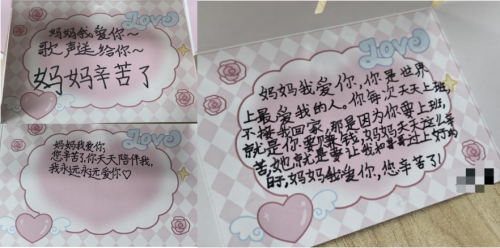 Love
妈妈我爱你~
歌声送给你~
妈妈辛苦了
Love
妈妈我爱你,
您辛苦了,你天天陪伴我,
我永远永远爱你♡
Love
妈妈我爱你,你是世界
上最爱我的人。你每次天天上班,
不接我回家,那是因为你要上班,
就是你要赚钱,妈妈天天这么辛
苦,她就是要让我和哥哥过上好的
的,妈妈我爱你,您辛苦了!